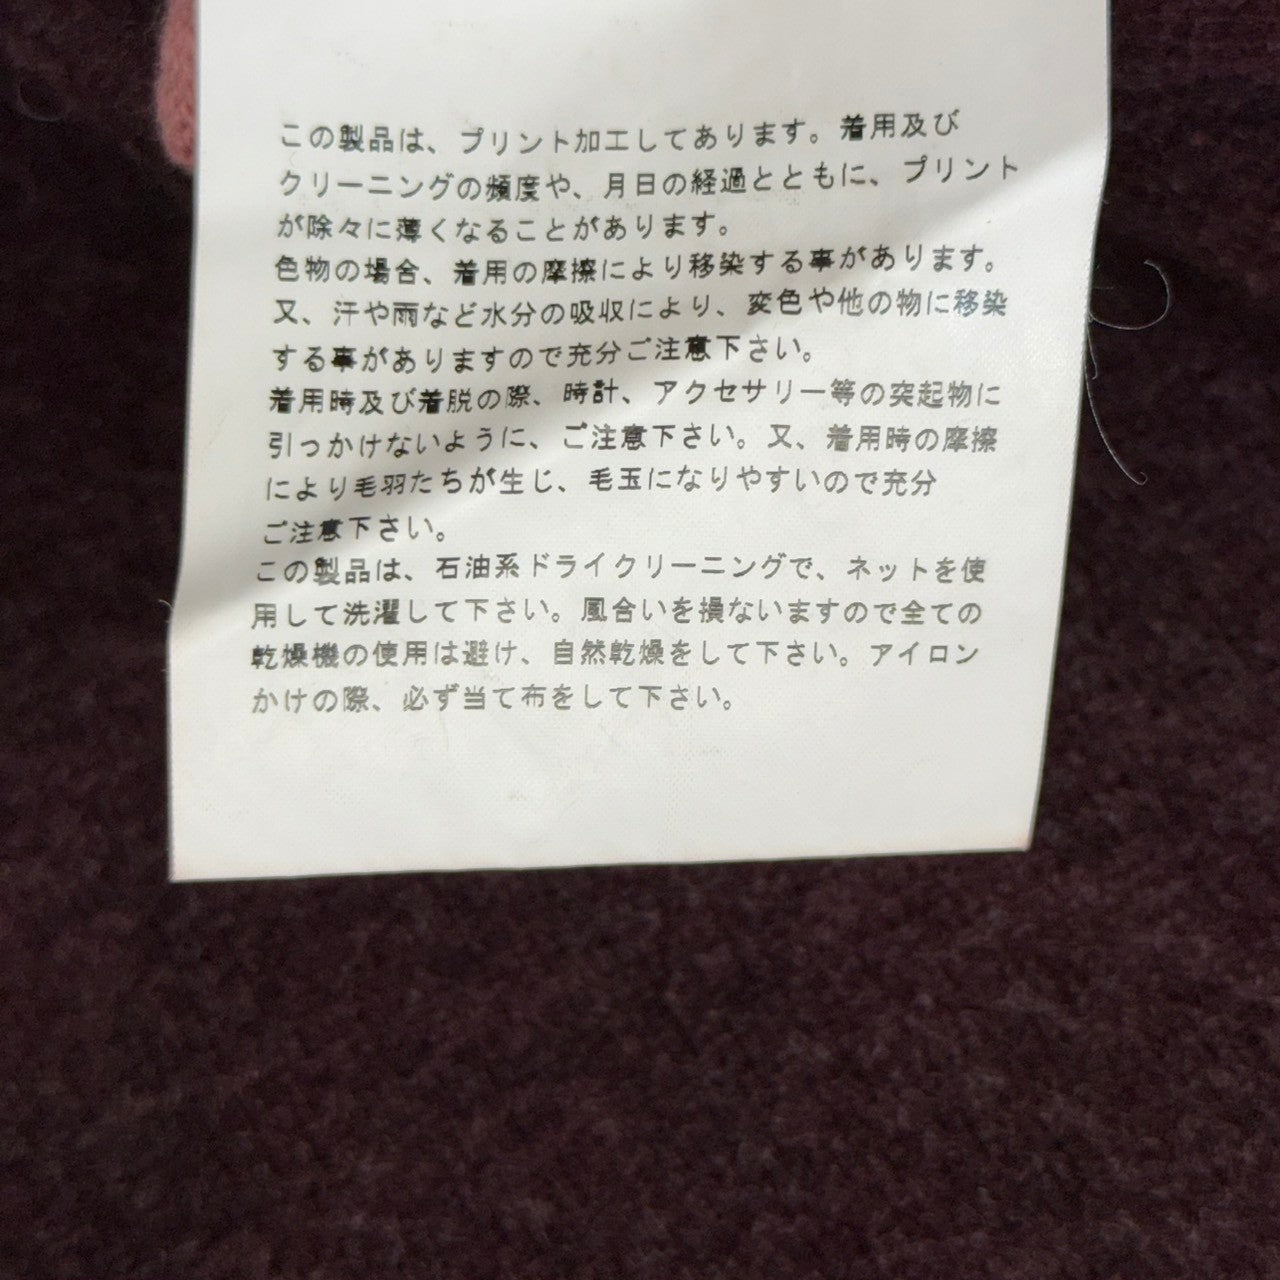 この製品は、プリント加工してあります。着用及び
クリーニングの頻度や、月日の経過とともに、プリント
が除々に薄くなることがあります。
色物の場合、着用の摩擦により移染する事があります。
又、汗や雨など水分の吸収により、変色や他の物に移染
する事がありますので充分ご注意下さい。
着用時及び着脱の際、時計、アクセサリー等の突起物に
引っかけないように、ご注意下さい。又、着用時の摩擦
により毛羽たちが生じ、毛玉になりやすいので充分
ご注意下さい。
この製品は、石油系ドライクリーニングで、ネットを使
用して洗濯して下さい。風合いを損ないますので全ての
乾燥機の使用は避け、自然乾燥をして下さい。アイロン
かけの際、必ず当て布をして下さい。